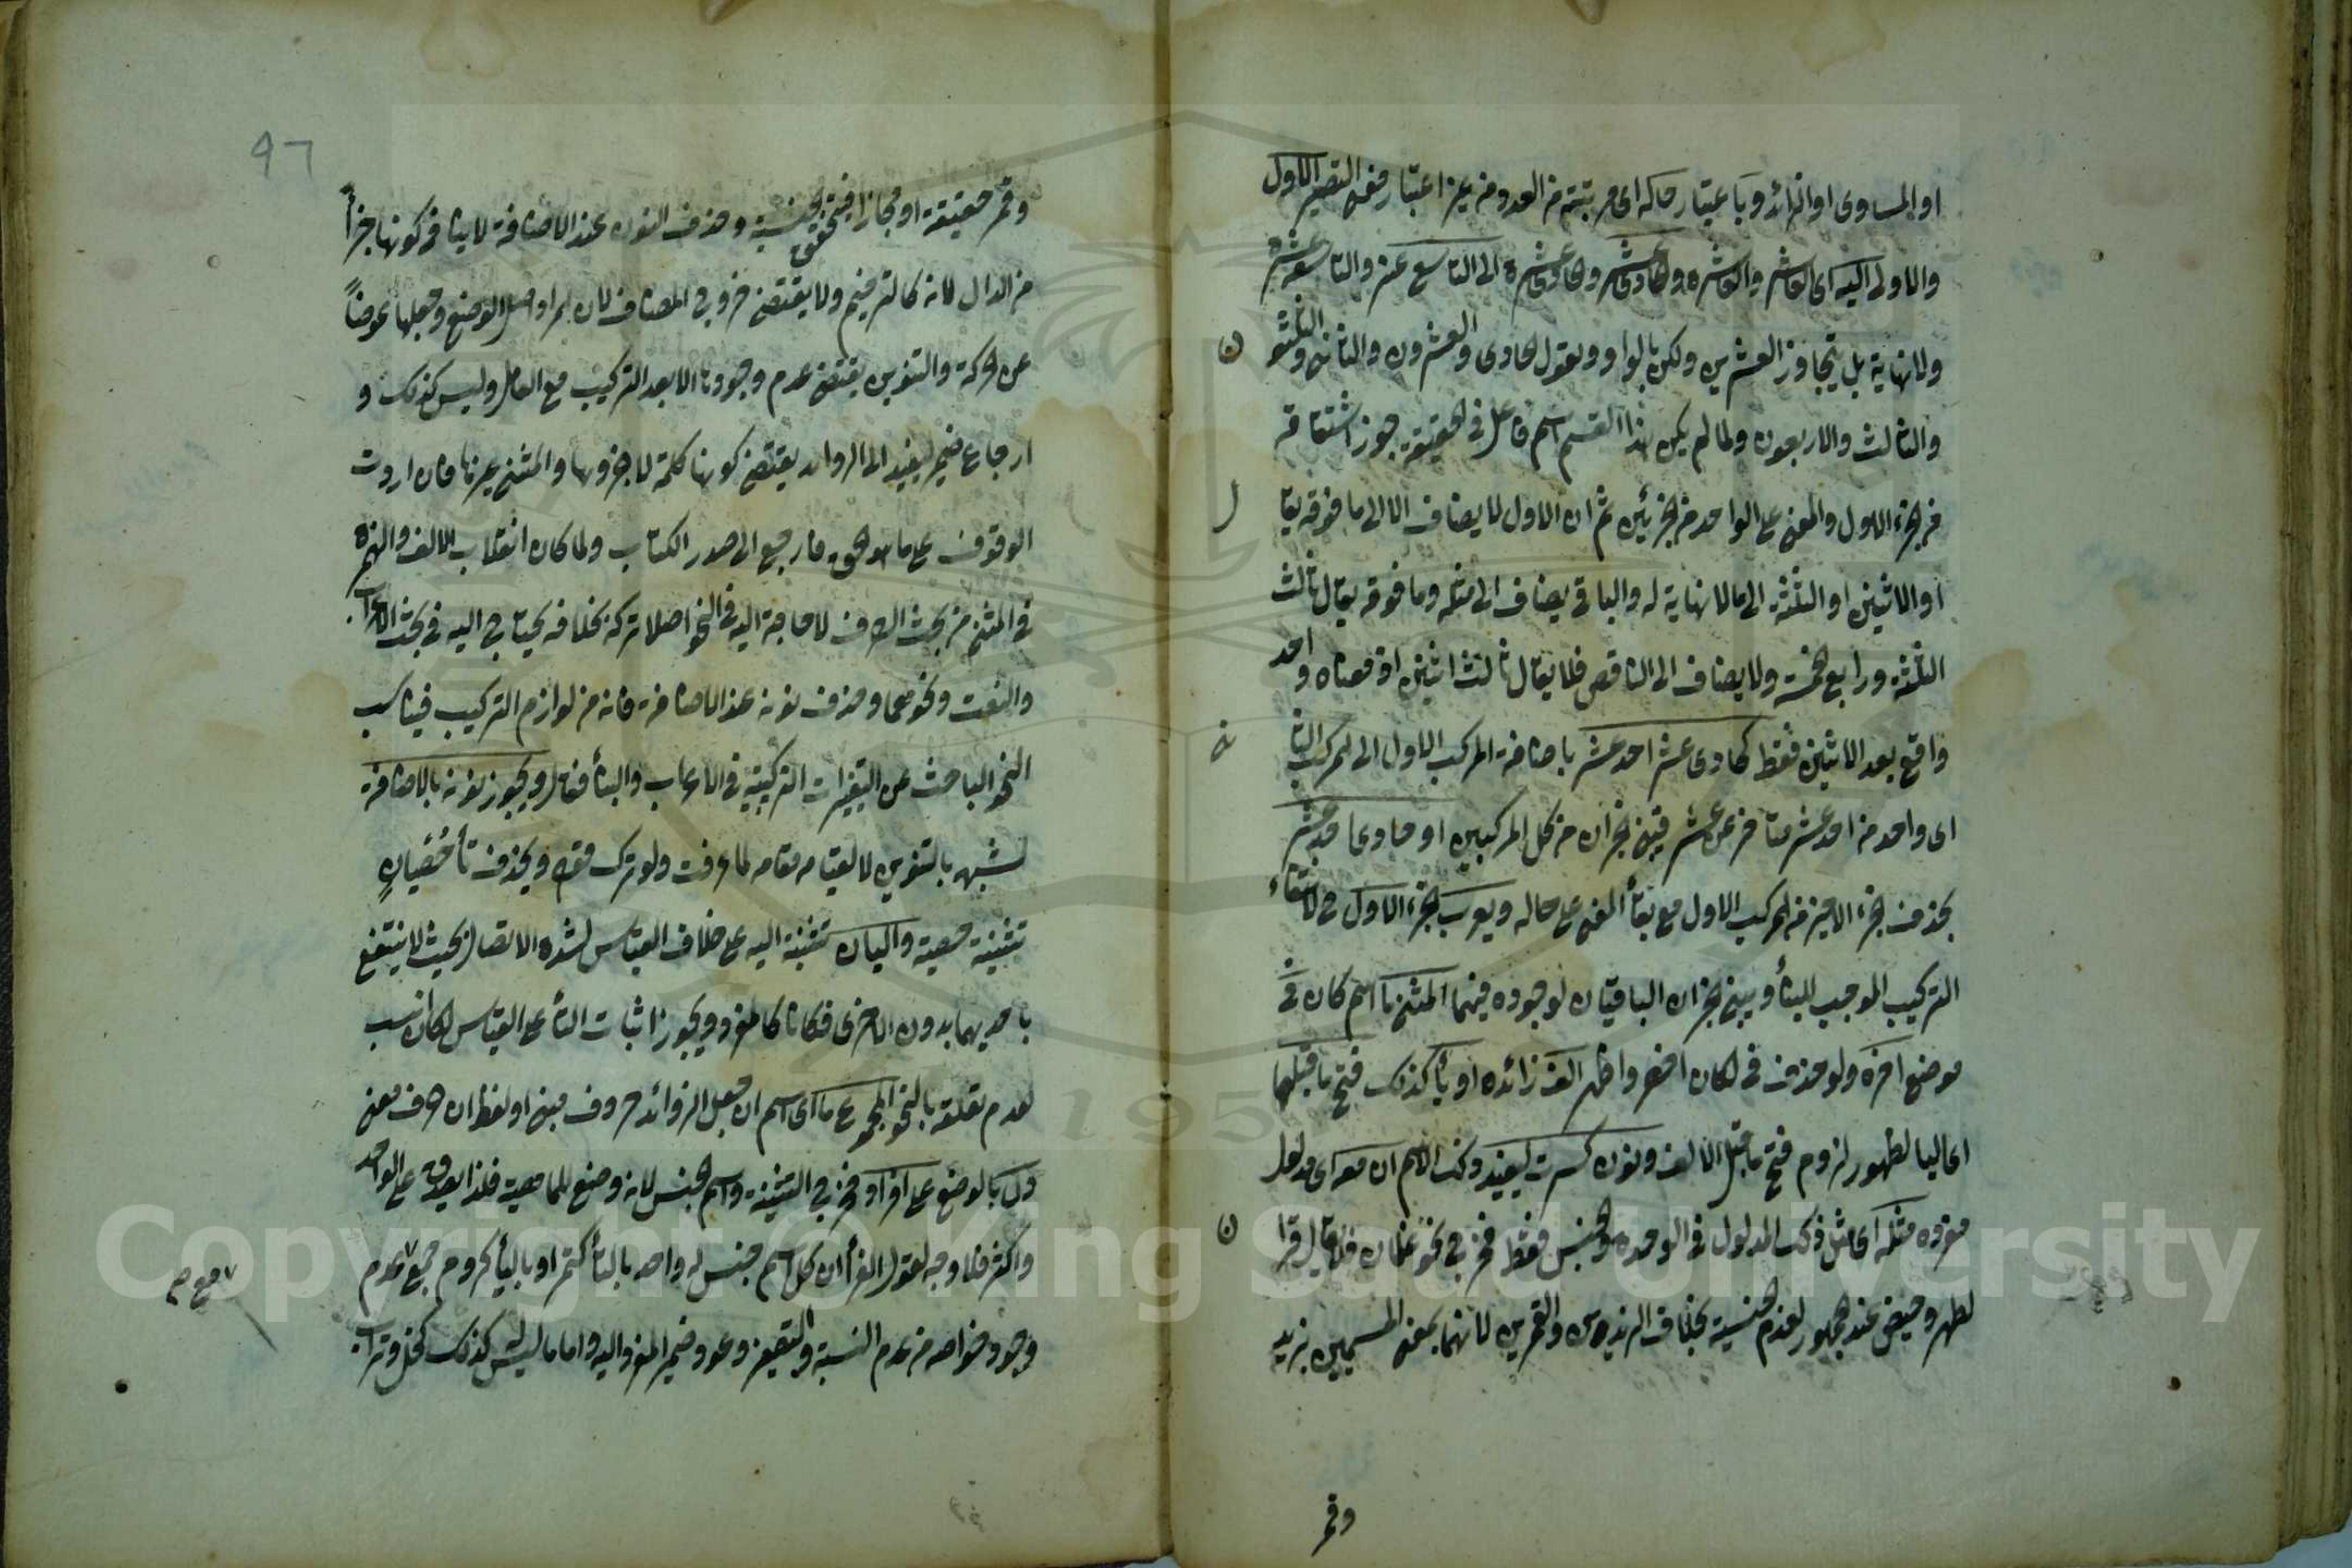 او المساوى او الزائد وباعتبار حاله اى مرتبته من العدد من غير اعتبار معنى التصيير الاول
والاولى اليه اى العاشر والعاشرة وحادى عشر وحادية عشرة الى التاسع عشر والتاسعة عشرة
ولا نهاية بل يتجاوز العشرين ولكن بالواو ويقول الحادى والعشرون والثانى والثلثو
ن
والثالث والاربعون ولما لم يكن هذا القسم اسم فاعل فى الحقيقة جوز اشتقاقه
من الجزء الاول والمعنى على الواحد من الجزئين ثم ان الاول لا يضاف الا الى ما فوقه يقا
ل
او الاثنين او الثلثة الى ما لا نهاية له والباقى يضاف الى مثله وما فوقه يقال ثالث
الثلثة ورابع الخمسة ولا يضاف الى الناقص فلا يقال ثالث اثنين اذ معناه واحد
واقع بعد الاثنين فقط كحادى عشر احد عشر باضافة المركب الاول الى المركب الثا
نى
اى واحد من احد عشر متاخر عن عشر فيبنى الجزءان من كل المركبين او حادى احد عشر
بحذف الجزء الاخير من المركب الاول مع بقاء المعنى على حاله ويعرب الجزء الاول لانتفاء
التركيب الموجب للبناء ويبنى الجزءان الباقيان لوجوده فيهما المثنى ما اسم كان فى
موضع اخره ولو حذف فى لكان اخصر واظهر الف زائدة او ياء كذلك فتح ما قبلها
اى اليا لظهور لزوم فتح ما قبل الالف ونون كسرت ليفيد ذلك الاسم ان معه اى مدلول
مفرده مثله اى مثل ذلك المدلول فى الوحدة والجنس فقط فخرج نحو غلمان فلا يقال قرأ
ن
لطهر وحيض عند الجمهور لعدم الجنسية بخلاف الزيدين والقمرين لانهما بمعنى المسميين بزيد
وقمر
٩٦
وقمر حقيقة او مجازا فيتحقق الجنسية وحذف النون عند الاضافة لا ينافى كونها جزأ
من الدال لانه كالترخيم ولا يقتضى خروج المضاف لان المراد اصل الوضع وجعلها عوضاً
عن الحركة والتنوين يقتضى عدم وجودها الا بعد التركيب مع العامل وليس كذلك و
ارجاع ضمير ليفيد الى الزوايد يقتضى كونها كلمة لا جزؤها والمثنى غيرها فان اردت
الوقوف على ما هو الحق فارجع الى صدر الكتاب ولما كان انقلاب الالف والهمزة
فى المثنى من بحث الصرف لا حاجة اليه فى النحو اصلا تركه بخلافه يحتاج اليه فى بحث الاعراب
والنعت ونحوهما وحذف نونه عند الاضافة فانه من لوازم التركيب فيناسب
النحو الباحث عن التغيرات التركيبية فى الاعراب والبناء فقال ويجوز نونه بالاضافة
لشبهه بالتنوين لا لقيامه مقامه لما عرفت ولو ترك قوله ويحذف تاء خُصْيان
تثنية خصية واليان تثنية الية على خلاف القياس لشدة الاتصال بحيث لا ينتفع
باحديهما بدون الاخرى فكانا كالمفرد ويجوز اثبات التاء على القياس لكان انسب
لعدم تعلقه بالنحو المجموع ما اى اسم ان جعل الزوائد حروف مبنى او لفظ ان حرف معنى
دل بالوضع على افراد فخرج التثنية واسم الجنس لانه وضع للماهية فلذا يصدق على الواحد
والكثير فلا وجه لقول الفراء ان كل اسم جنس له واحد بالتاء كتمر او بالياء كروم جمع لعدم
وجود خواصه من عدم النسبة والتصغير وعود ضمير المفرد اليه واما ما ليس كذلك كخل وتراب